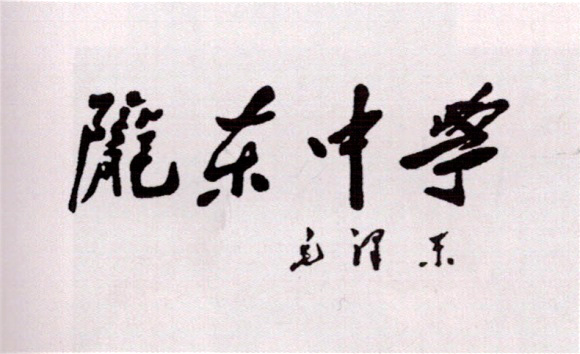 隴东中学
毛泽东